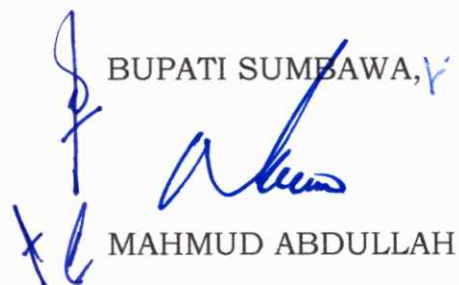 BUPATI SUMBAWA,
MAHMUD ABDULLAH